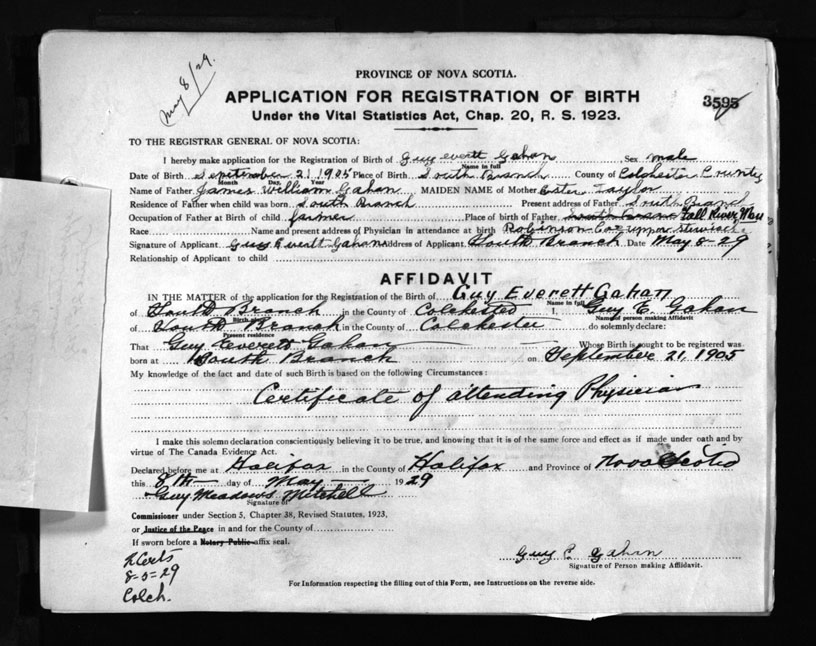 May 8/29.
PROVINCE OF NOVA SCOTIA.
3595
APPLICATION FOR REGISTRATION OF BIRTH
Under the Vital Statistics Act, Chap. 20, R. S. 1923.
TO THE REGISTRAR GENERAL OF NOVA SCOTIA:
I hereby make application for the Registration of Birth of Guy everett Gahan Sex male
Name in full
Date of Birth September 21 1905 Place of Birth South Branch County of Colchester County
Month Day, Year
Name of Father James William Gahan MAIDEN NAME of Mother Ester Taylor
Residence of Father when child was born South Branch Present address of Father South Branch
Occupation of Father at Birth of child farmer Place of birth of Father Fall River Mass
Race Name and present address of Physician in attendance at birth Robinson Cox upper Stewiacke
Signature of Applicant Guy Everett Gahan Address of Applicant South Branch Date May 8-29
Relationship of Applicant to child
AFFIDAVIT
IN THE MATTER of the application for the Registration of the Birth of Guy Everett Gahan
Name in full
of South Branch in the County of Colchester I, Guy E. Gahan
Birth place Name of person making Affidavit
of South Branch in the County of Colchester do solemnly declare:
Present residence
That Guy Everett Gahan Whose Birth is sought to be registered was
born at South Branch on September 21, 1905
My knowledge of the fact and date of such Birth is based on the following Circumstances:
Certificate of attending Physician
I make this solemn declaration conscientiously believing it to be true, and knowing that it is of the same force and effect as if made under oath and by
virtue of The Canada Evidence Act.
Declared before me at Halifax in the County of Halifax and Province of Nova Scotia
this 8th day of May 1929
Guy Meadows Mitchell
Signature of
Commissioner under Section 5, Chapter 38, Revised Statutes, 1923,
or Justice of the Peace in and for the County of
If sworn before a Notary Public affix seal.
Guy E. Gahan
Signature of Person making Affidavit.
8-5-29
Colch.
For Information respecting the filling out of this Form, see Instructions on the reverse side.